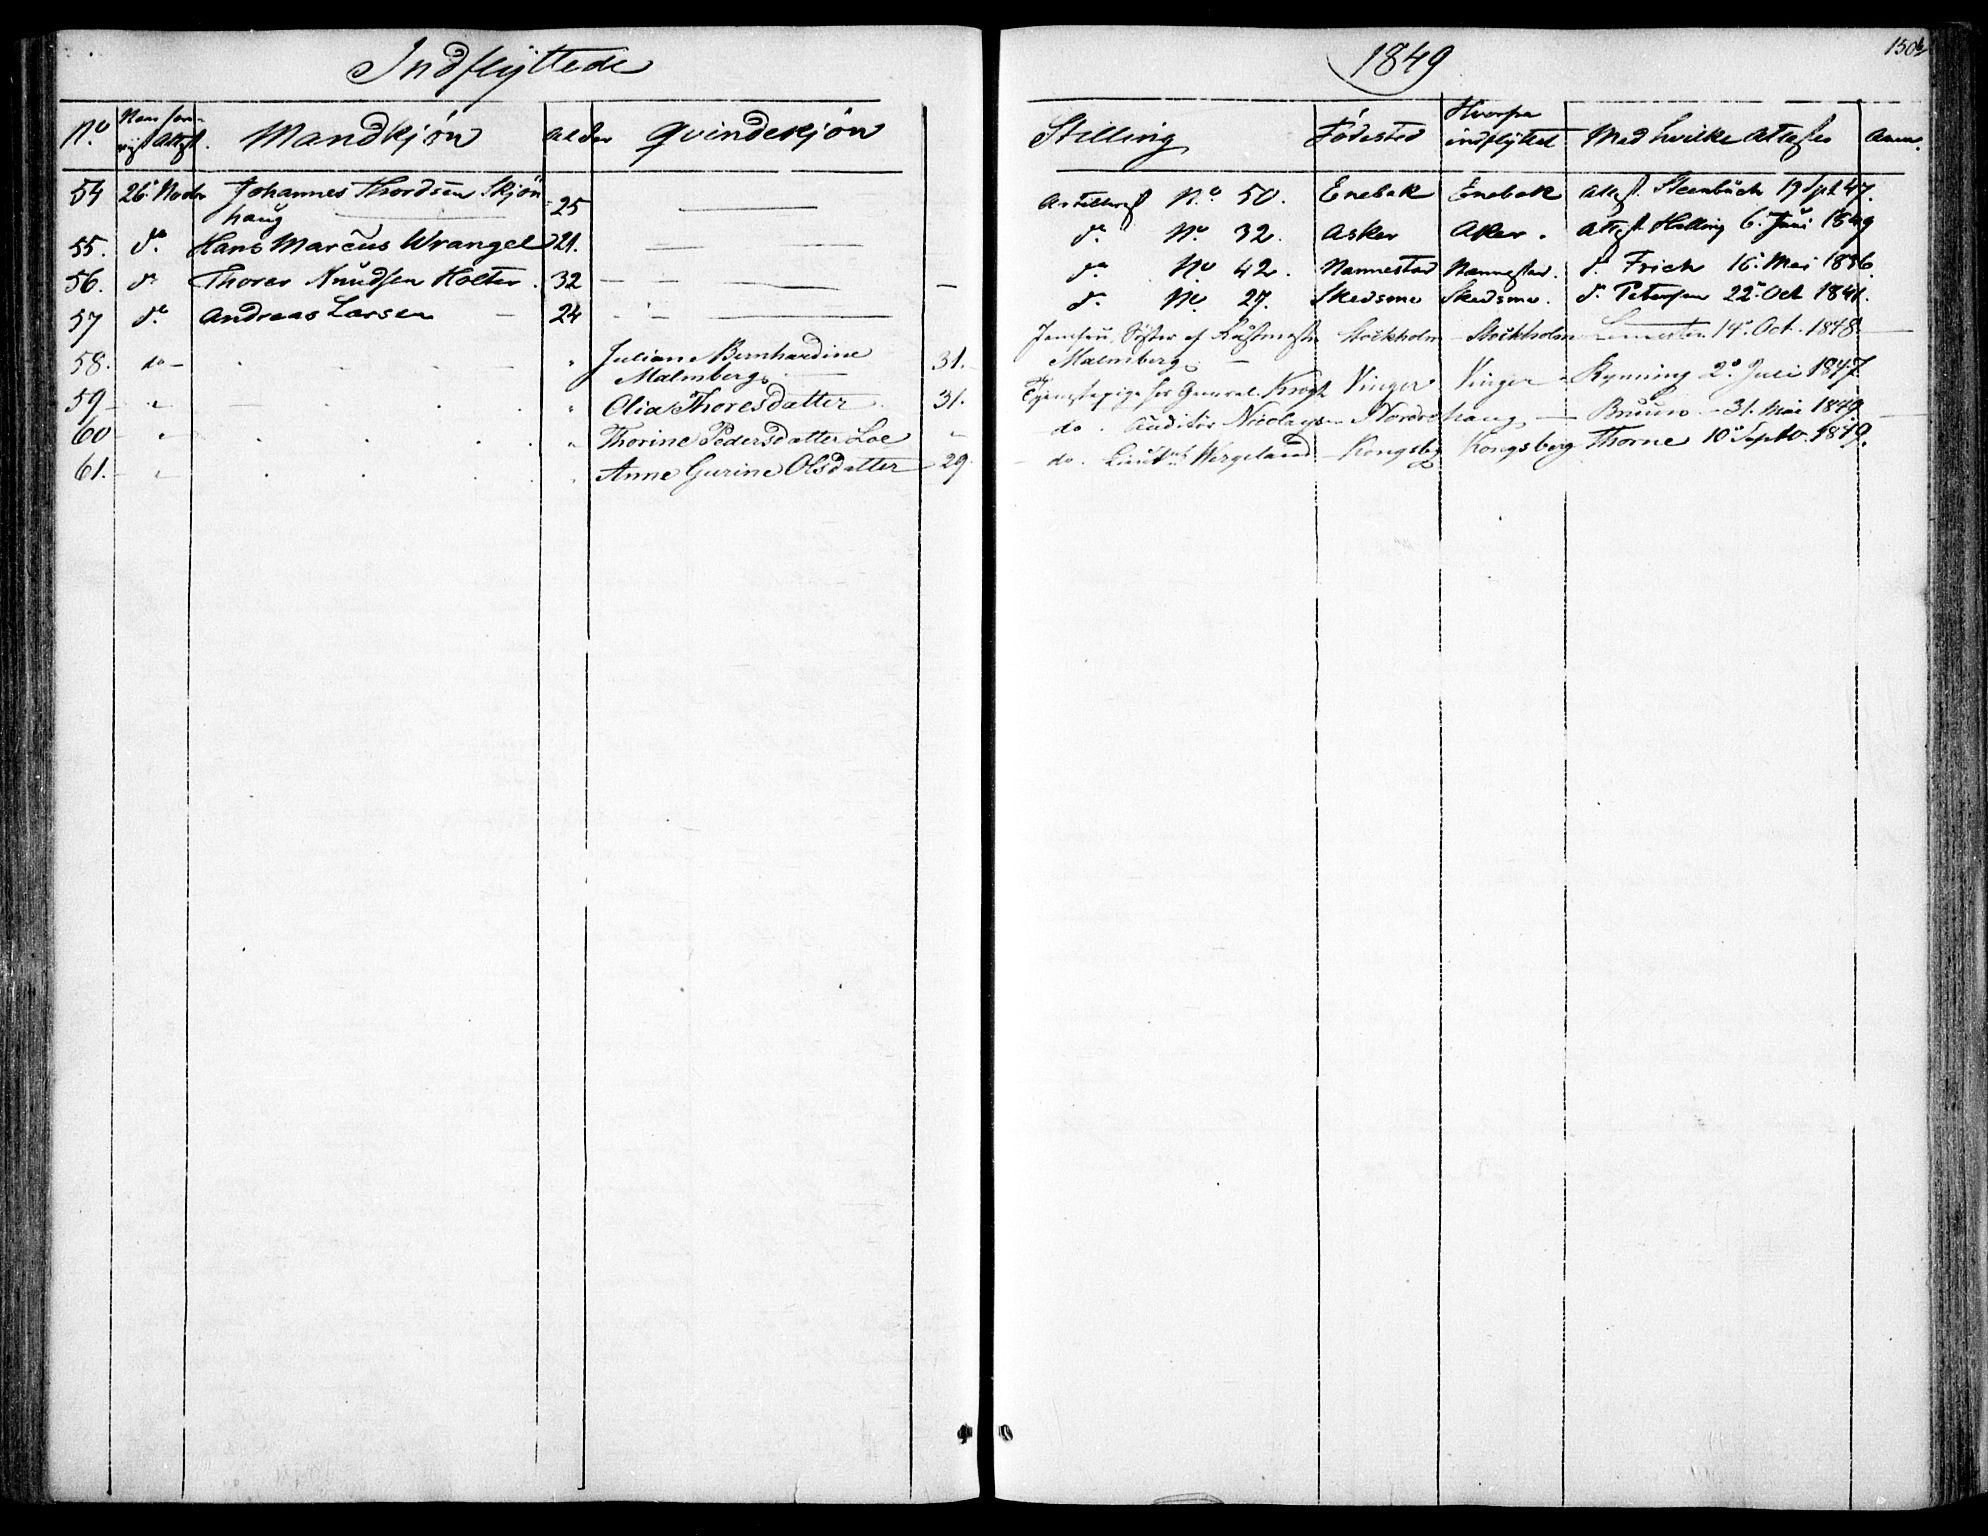 Indflyttede
1849
150
No Mandkjøn Alder Qvindekjøn
Stilling Fødested Hvorfra indflyttet Med hvilke Attester Anm.
54 26 Novbr Johannes Thordsen Skjönhaug 25 No 50. Enebak Enebak Attest. Steenbuch 19 Sept 47.
55. do Hans Marcus Wrangel 21. do No 32. Asker Asker. Attest Halling 6 Juni 1849
56. do Thorer Knudsen Holter 32 do No 42. Nannestad Nannestad. d. Frich 16 Mai 1836.
57 do Andreas Larsen 24 do No 27. Skedsmo Skedsmo. d. Petersen 22 Oct 1841.
58. do Juliane Bernhardine Malmberg 31. Jomfru, Søster af Malmberg Stockholm Stockholm 14 Oct. 1848
59 " Olia Thoresdatter 31. Tjenestepige hos General Krogh Vinger Vinger Rynning 2 Juli 1847.
60 " Thorine Pedersdatter Loe " do. Auditør Nicolaysen Norderhaug Bruun 31. Mai 1849
61. " Anne Gurine Olsdatter 29. do. Wergeland Kongsbg Kongsberg Thorne 10 Septb 1849.